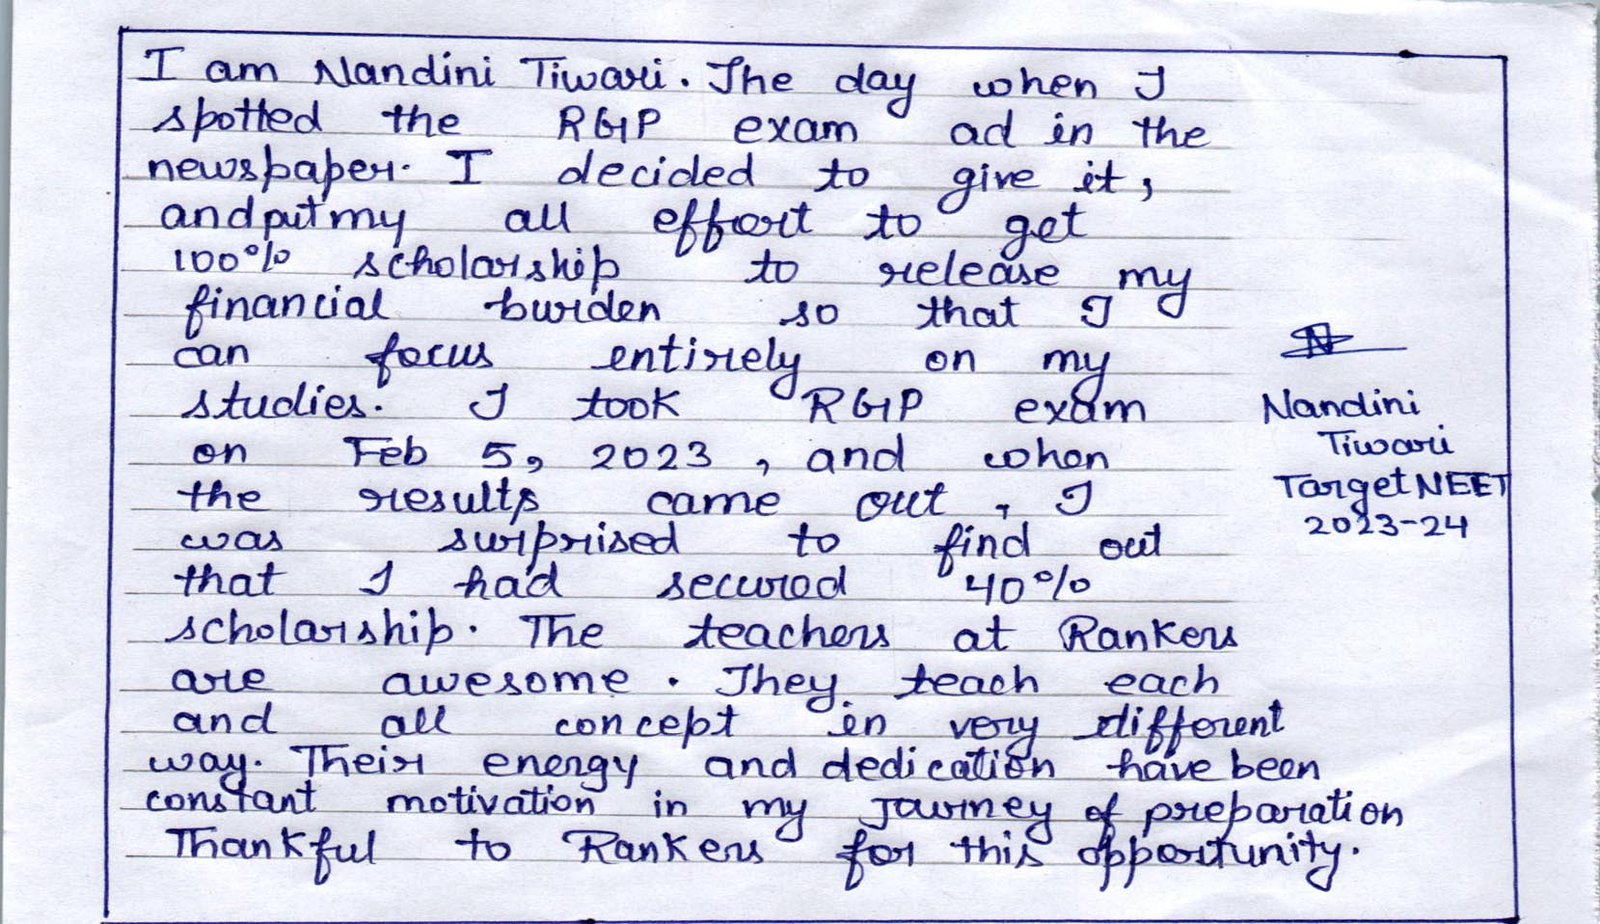 I am Nandini Tiwari. The day when I
spotted the RGIP exam ad in the
newspaper. I decided to give it,
and put my all effort to get
100% scholarship to release my
financial burden so that I
can focus entirely on my
studies. I took RGIP exam
on Feb 5, 2023, and when
the results came out, I
was surprised to find out
that I had secured 40%
scholarship. The teachers at Rankers
are awesome. They teach each
and all concept in very different
way. Their energy and dedication have been
constant motivation in my journey of preparation
Thankful to Rankers for this opportunity.
Nandini
Tiwari
Target NEET
2023-24